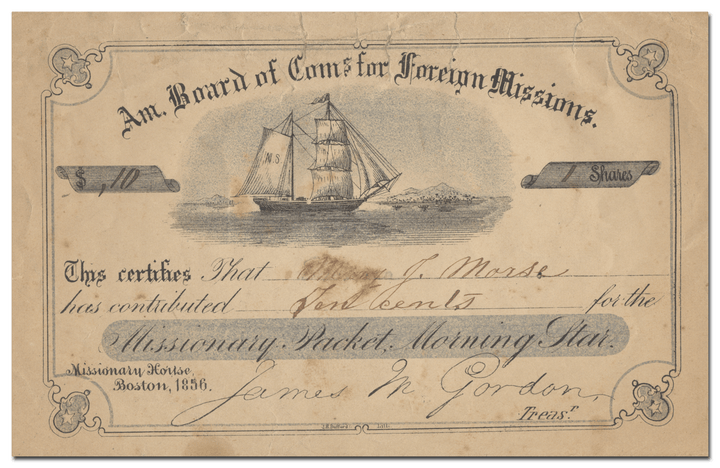 Am. Board of Coms for Foreign Missions.
M S
$ ,10
1 Shares
This certifies That J. Morse
has contributed Ten cents for the
Missionary Packet, Morning Star.
Missionary House,
Boston, 1856.
James M Gordon,
Treasr.